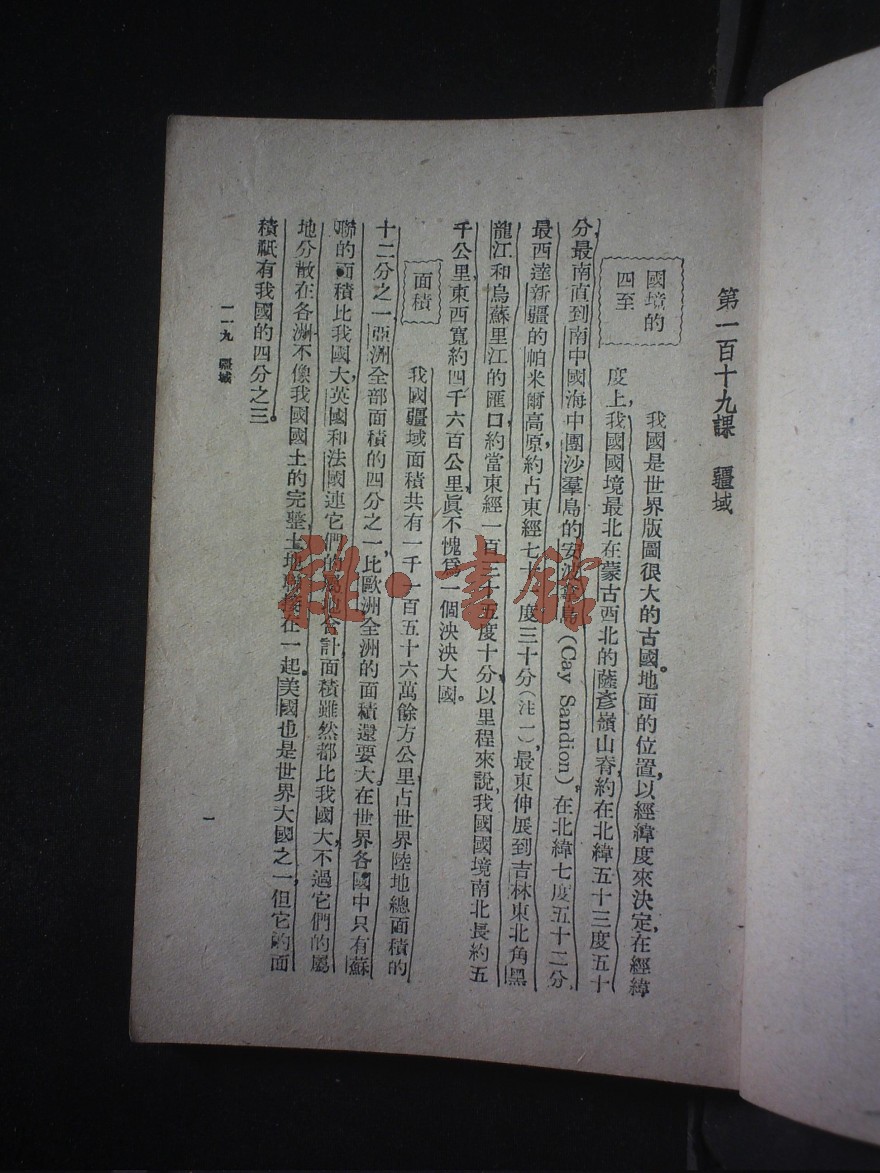 第一百十九課　疆域
國境的
四至
我國是世界版圖很大的古國。地面的位置，以經緯度來決定，在經緯
度上，我國國境最北在蒙古西北的薩彥嶺山脊，約在北緯五十三度五十
分，最南直到南中國海中團沙羣島的安波拿島（Cay Sandion），在北緯七度五十二分，
最西達新疆的帕米爾高原，約占東經七十一度三十分（注一），最東伸展到吉林東北角黑
龍江和烏蘇里江的匯口，約當東經一百三十五度十分。以里程來說，我國國境南北長約五
千公里，東西寬約四千六百公里，眞不愧爲一個泱泱大國。
面積
我國疆域面積共有一千一百五十六萬餘方公里，占世界陸地總面積的
十二分之一，亞洲全部面積的四分之一，比歐洲全洲的面積還要大。在世界各國中只有蘇
聯的面積比我國大，英國和法國連它們的屬地合計，面積雖然都比我國大，不過它們的屬
地分散在各洲，不像我國國土的完整，土地聯接在一起。美國也是世界大國之一，但它的面
積祇有我國的四分之三。
一一九　疆域
一
雜·書館